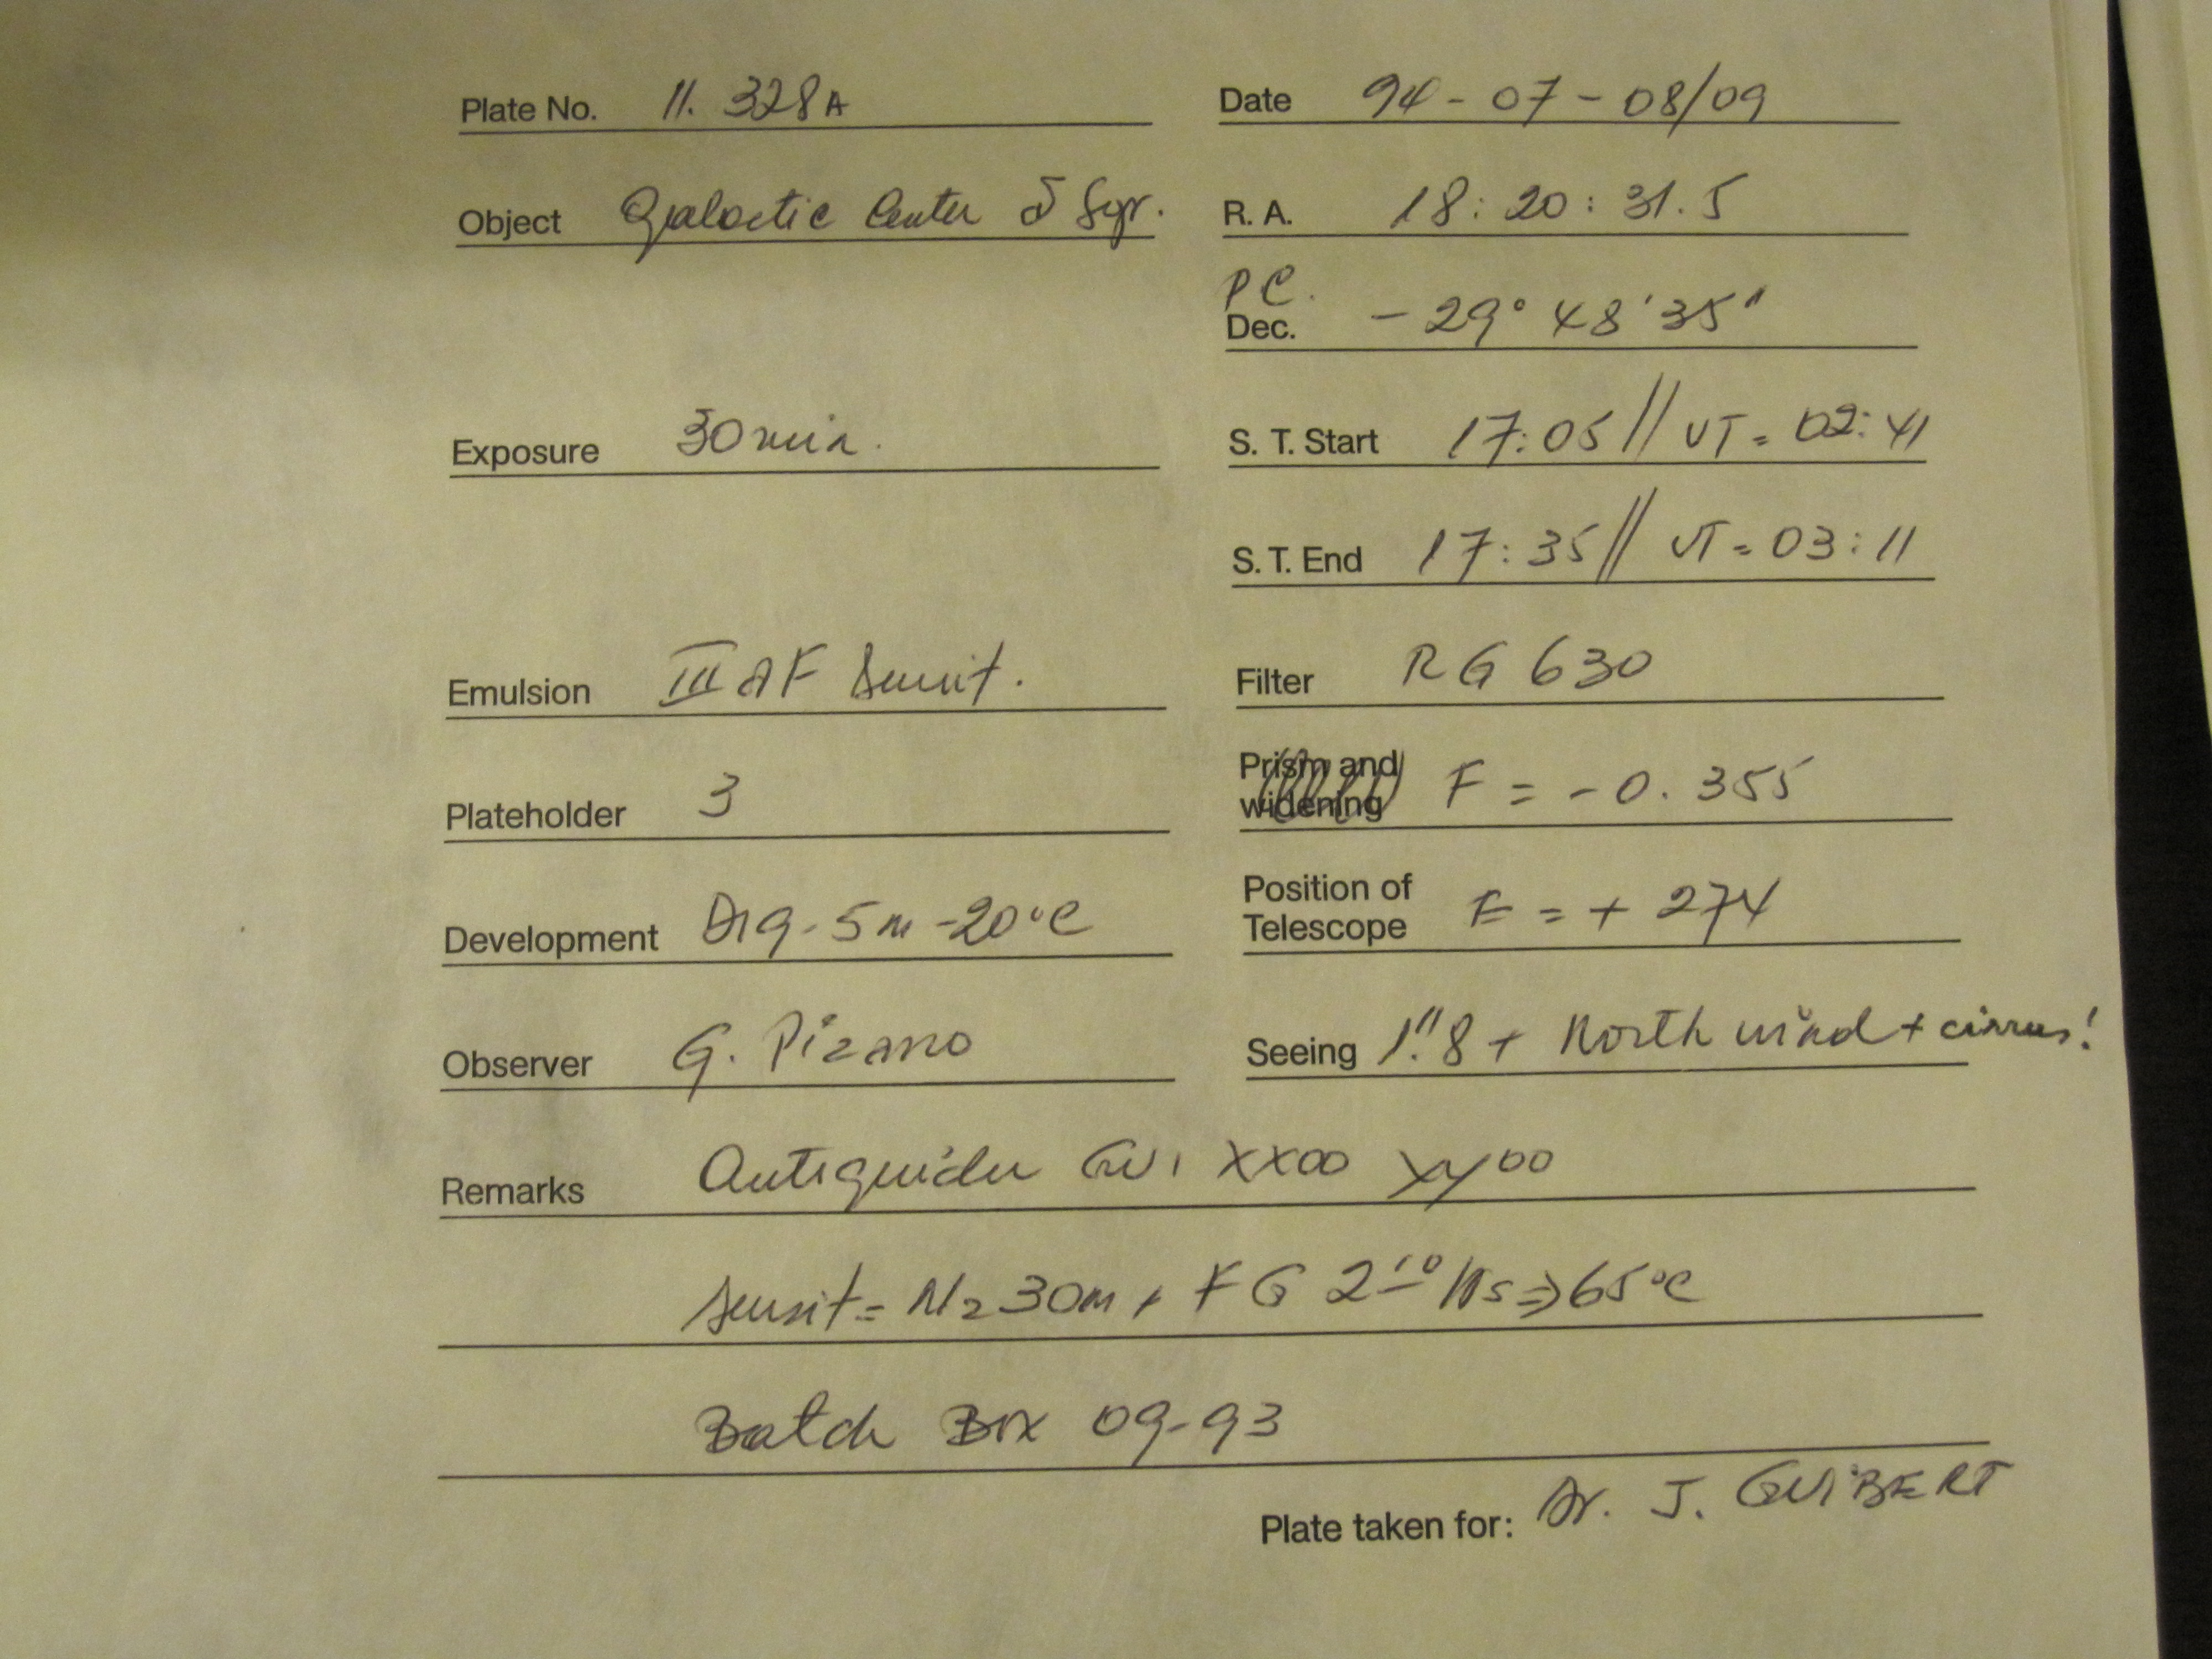 Plate No. 11.328A
Date 94-07-08/09
Object Galactic Center δ Sgr.
R. A. 18:20:31.5
P C.
Dec. -29° 48'35"
Exposure 30 min.
S. T. Start 17:05 // UT = 02:41
S. T. End 17:35 // UT = 03:11
Emulsion III AF Sensit.
Filter RG 630
Plateholder 3
Prism and widening F = -0.355
Development D19-5m-20°C
Position of Telescope E = + 274
Observer G. Pizarro
Seeing 1".8 + North wind + cirrus!
Remarks Autoguider XX00 YY00
Sensit = N2 30m + FG 65°C
Batch Box 09-93
Plate taken for: Dr. J. GUIBERT